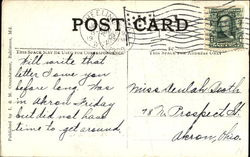 POST CARD
THIS SPACE MAY BE USED FOR CORRESPONDENCE
THIS SPACE FOR ADDRESS ONLY
Will write that
letter I owe you
before long. Was
in Akron Friday
but did not have
time to get around.
Miss Beulah
78 N. Prospect St.
Akron, Ohio.
Published by I. & M. Ottenheimer, Baltimore, Md.